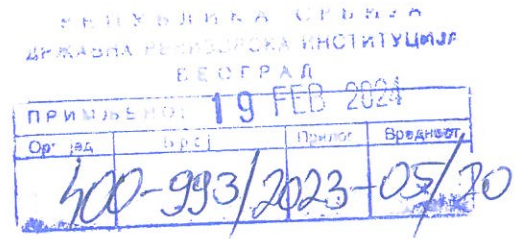 РЕПУБЛИКА СРБИЈА
ДРЖАВНА РЕВИЗОРСКА ИНСТИТУЦИЈА
БЕОГРАД
ПРИМЉЕНО: 19 FEB 2024
Орг јед Број Прилог Вредност
400-993/2023-05/20